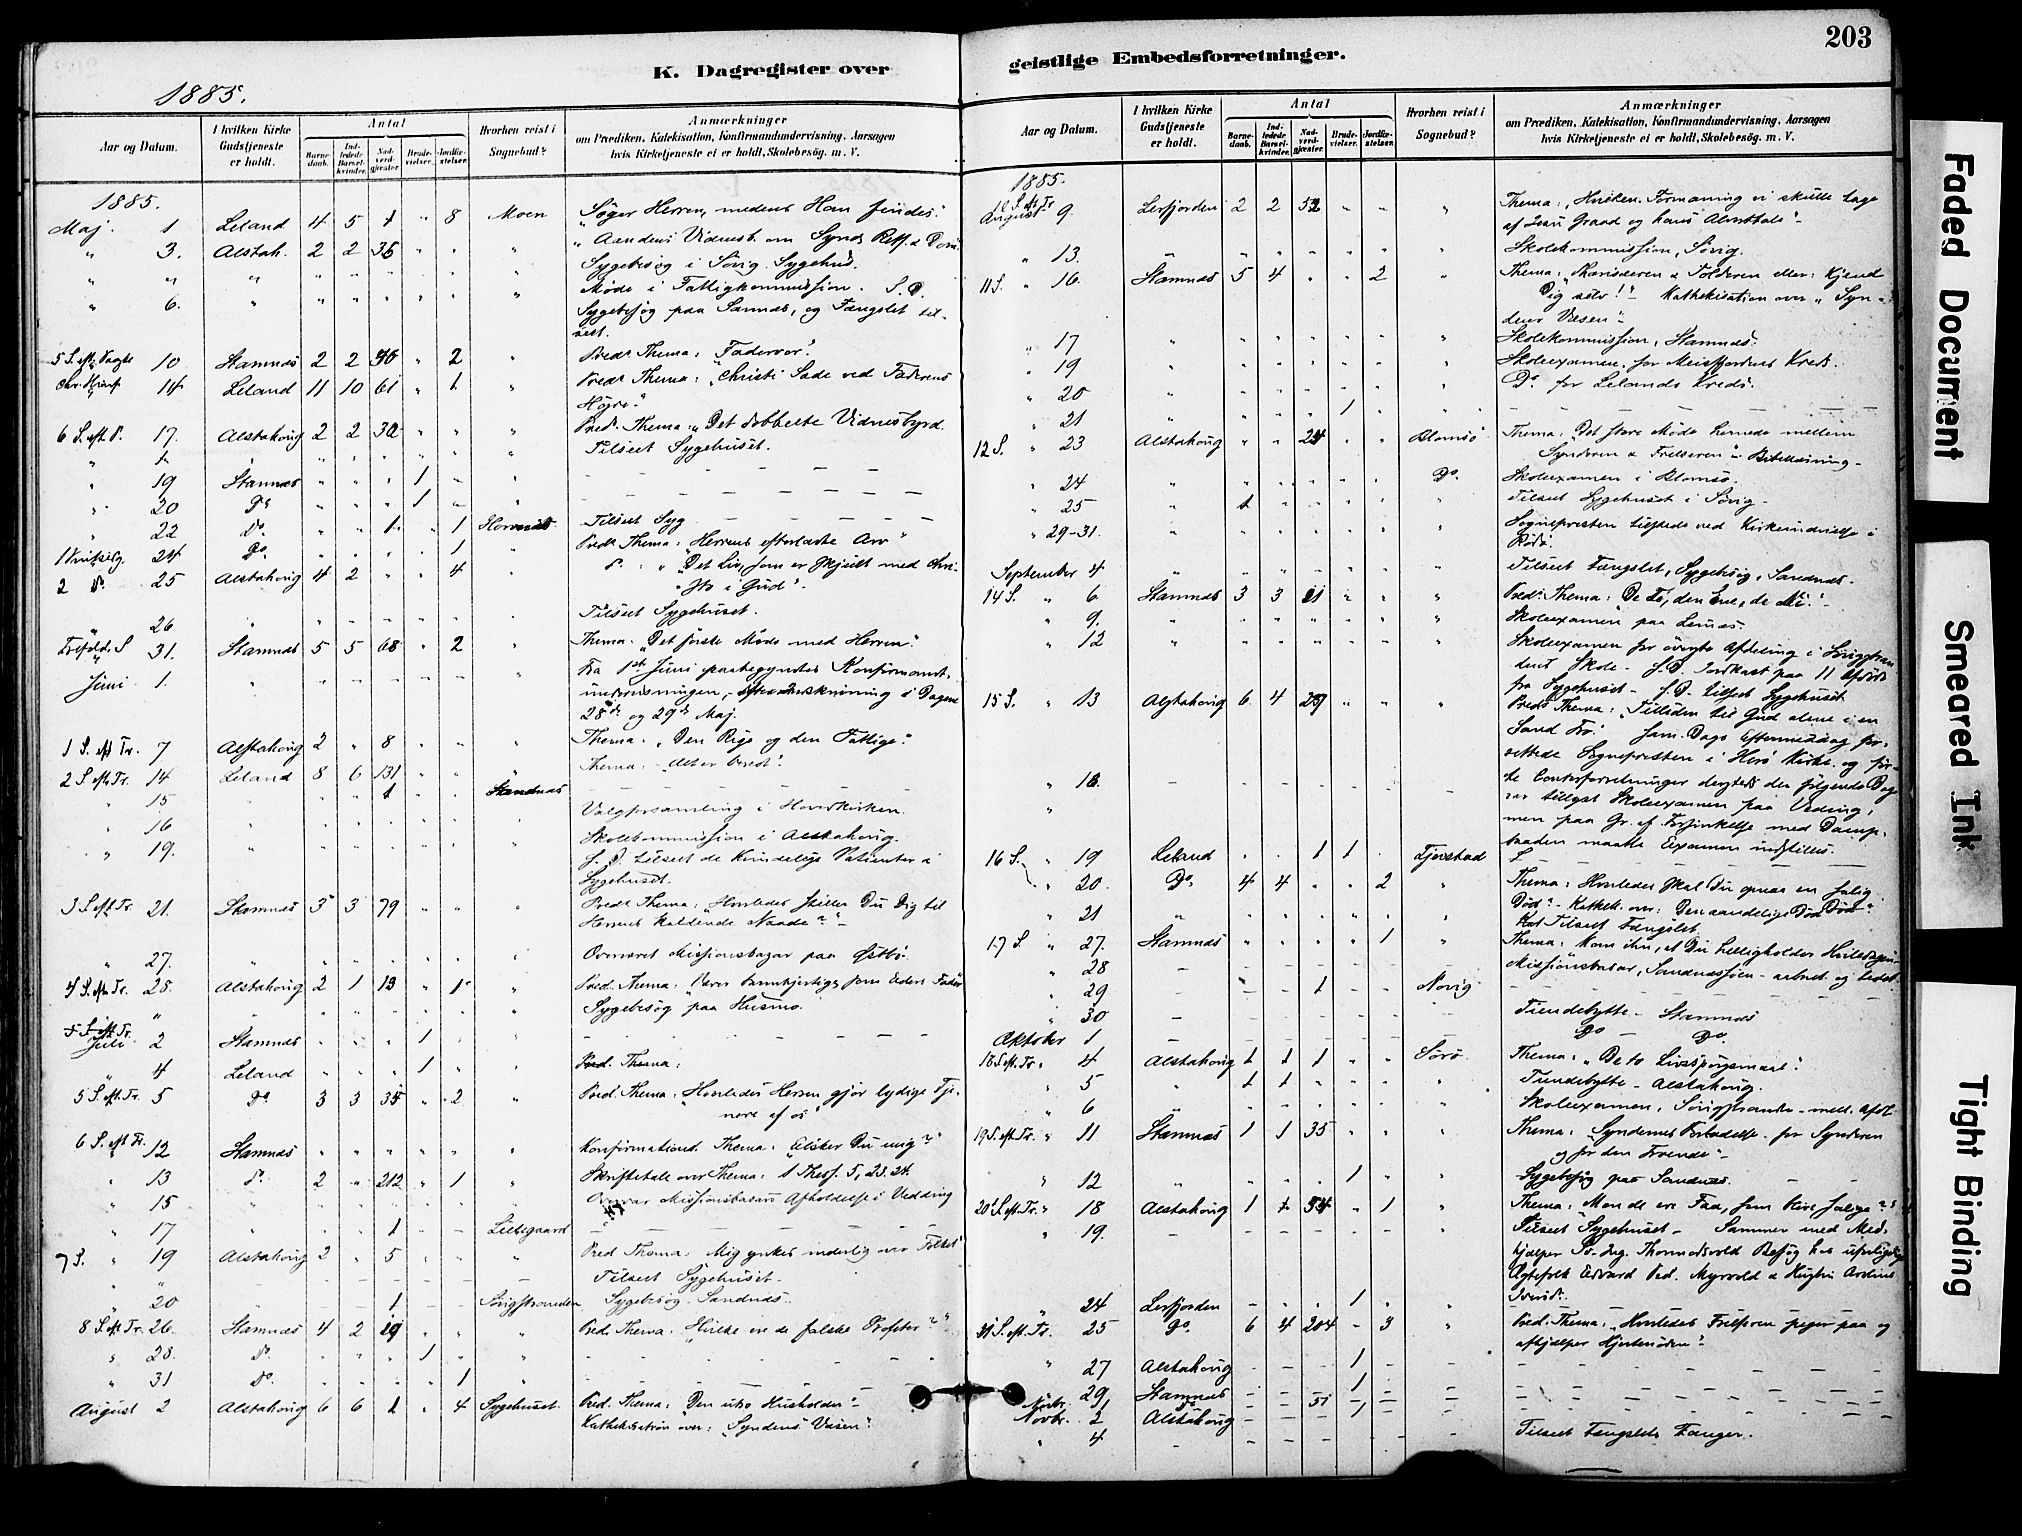 203
K. Dagregister over
geistlige Embedsforretninger.
1885.
Aar og Datum.
I hvilken Kirke Gudstjeneste er holdt.
Antal
Barnedaab.
Indledede Barselkvinder.
Nadverdgjæster.
Brudevielser.
Jordfæstelser.
Hvorhen reist i Sognebud?
Anmærkninger
om Prædiken, Katekisation, Konfirmandundervisning, Aarsagen
hvis Kirketjeneste ei er holdt, Skolebesøg. m. V.
1885.
Maj. 1 Leland 4 5 1 " 8 Moen Søger Herren, medens Han findes.
" 3. Alstah. 2 2 36 " " " Aandens Vidnesb. om Synd, Retf. & Dom
" " " Sygebesøg i Søvig. Sygehus.
" 6. " Møde i Fattigkommission. S. D.
Sygebesøg paa Sannæs, og Fængslet til-
seet.
10 Stamnæs 2 2 " 2 " Præd. Thema: "Fadervor".
14 Leland 11 10 61 " 1 " Præd. Thema: "Christi Sæde ved Faderens
Højre."
6 S. eft. P. 17. Alstahoug 2 2 32 " " " Præd. Thema: "Det dobbelte Vidnesbyrd.
Tilseet Sygehuset.
" 19 Stamnæs " " " 1 "
" 20 Do " " " 1 "
" 22 Do " " 1 " 1 Tilseet Syg
24 Do " " " " 1 " Præd. Thema: "Herrens efterladte Arv"
2 Do 25 Alstahoug 4 2 " " 4 " Do: "Det Liv, som er skjult med Chri-
sto i Gud".
" 26 Tilseet Sygehuset.
Trefold. S 31. Stamnæs 5 5 68 " 2 Thema: "Det første Møde med Herren."
Juni 1. Fra 1ste Juni paabegyndtes Konfirmant-
undervisningen, efter Indskrivning i Dagene
28de og 29de Maj.
1 S. eft Tr. 7 Alstahoug 2 " 8 " " " Thema: "Den Rige og den Fattige."
2 S. eft Tr. 14 Leland 8 6 131 " " " Thema: "Alt er beredt".
" 15 1 Sandnæs
" 16 Valgforsamling i Hovedkirken.
" 19. Skolekommission i Alstahoug.
S. D. tilseet de kvindelige Patienter i
Sygehuset.
3 S. eft Tr. 21. Stamnæs 3 3 79 " " " Præd. Thema: Hvorledes stiller Du Dig til
Herrens kaldende Naade?"
" 27. Overværet Missionsbazar paa Østbø.
4 S. eft Tr. 28. Alstahoug 2 1 13 " 1 " Præd. Thema: Værer barmhjertige, som Eders Fader
Sygebesøg paa Husmo.
Juli 2 Stamnæs " " " 1 "
" 4 Leland " " " 1 " Præd. Thema:
5 S. eft. Tr. 5 Do 3 3 35 " 2 " Præd. Thema: "Hvorledes Herren gjør lydige Tje-
nere af os"
6 S. eft Tr. 12 Stamnæs " " " " " Konfirmationsd. Thema: "Elsker Du mig?"
" 13 Do 2 " 212 " 1 " Skriftetale over Thema: 1 Thess. 5, 23. 24.
" 15 Overvar Missionsbasars Afholdelse i Vedding
" 17 1
7 S. " 19 Alstahoug 2 " 5 " " Præd Thema: Mig ynkes inderlig over Folket
Tilseet Sygehuset.
" 20 1 Søvigstranden Sygebesøg Sandnæs.
8 S. eft Tr. 26. Stamnæs 4 2 19 " " " Præd. Thema: "Hvilke ere de falske Profeter?"
" 28. Do " " " 1 "
" 31 Do " " " " 1
August 2 Alstahoug 6 6 1 " 4 Sygehuset. Præd. Thema: Den utro Husholder"
Kathekisation over: "Syndens Væsen"
Aar og Datum.
I hvilken Kirke Gudstjeneste er holdt.
Antal
Barnedaab.
Indledede Barselkvinder.
Nadverdgjæster.
Brudevielser.
Jordfæstelser.
Hvorhen reist i Sognebud?
Anmærkninger
om Prædiken, Katekisation, Konfirmandundervisning, Aarsagen
hvis Kirketjeneste ei er holdt, Skolebesøg. m. V.
1885.
August 9. Leirfjorden 2 2 52 " " " Thema: "Hvilken Formaning vi skulle tage
af Jesu Graad og hans Alvorstale"
" 13. Skolekommission, Søvig.
11 S. " 16. Stamnæs 5 4 " " 2 " Thema: "Farisæeren & Tolderen eller: Kjend
Dig selv!" Kathekisation over "Syn-
dens Væsen"
" 17 Skolekommission, Stamnæs.
" 19 Skoleexamen for Meisfjordens Kreds.
" 20 Do. for Lelands Kreds.
" 21 1
12 S. " 23 Alstahoug " " 24 " " Blomsø Thema: "Det store Møde hernede mellem
Synderen & Frelseren" - Bibellæsning -
" 24 Do. Skoleexamen i Blomsø.
" 25 1 Tilseet Sygehuset i Søvig.
" 29-31. Sognepresten tilstede ved Kirkeindvielse i
Rødø.
September 4 Tilseet Fængslet, Sygebesøg, Sandnæs.
14 S. " 6 Stamnæs 3 3 21 " " " Præd. Thema: De Ti, den Ene, de Ni."
" 9. Skoleexamen paa
" 12 Skoleexamen for øvrste Afdeling i Søvigstran
dens Skole - S. D.
fra Sygehuset - S. D. tilseet Sygehuset
15 S. " 13 Alstahoug 6 4 29 " " " Præd. Thema: "Tilliden til Gud alene i en
sand Tro." Sam. Dags Eftermiddag for-
rettede Sognepresten i Herø Kirke og før-
te Contorforretninger dersteds den følgende Dag
" 16. var tillyst Skoleexamen paa Veding,
men paa Gr. af Forsinkelse med Damp-
baaden maatte Examen indstilles.
16 S. " 19 Leland " " 1 1 " Tjøvstad
" 20. Do. 4 4 " " 2 " Thema: Hvorledes skal Du opnaa en salig
Død? - Kathek. over: "Den aandelige Død"
" 21 Tilseet Fængslet
17 S. " 27. Stamnæs " " " " 1 " Thema: "Kom ihu, at Du helligholder Hviledagen
" 28 Missionsbasar, Sandnæssjøen -
" 29 1 Novig
" 30 Tiendebytte - Stamnæs
Oktober 1 Do - Do.
18 S. eft. Tr. " 4 Alstahoug 1 1 1 " " Thema: "De to Livsspørgsmaal"
" 5 " 1 1 Tiendebytte - Alstahoug.
" 6 Skoleexamen, Søvigstranden - mell. Afd.
19 S. eft. Tr. " 11 Stamnæs 1 1 35 " " " Thema: "Syndernes Forladelse for Synderen
og for den Troende"
" 12 1 Sygebesøg paa Sandnæs.
20 S. eft. Tr. " 18 Alstahoug 1 1 54 " 1 " Thema: Mon de ere Faa, som blive salige?"
" 19. Tilseet Sygehuset - Sammen med Med-
hjælper
Ægtefolk Edvard Ped. Myrvold & Hustru
" 24 Leirfjorden " " " 1 "
21 S. eft. Tr. 25 Do. 6 4 204 " 3 " Præd. Thema: "Hvorledes Frelseren peger paa og
afhjælper Hjertenøden"
" 27 Alstahoug 1
" 29 Stamnæs 1
Novbr. 1 Do 51
Novbr. 2 Alstahoug 1
" 4 Tilseet Fængslets Fanger.
Faded Document
Smeared Ink
Tight Binding